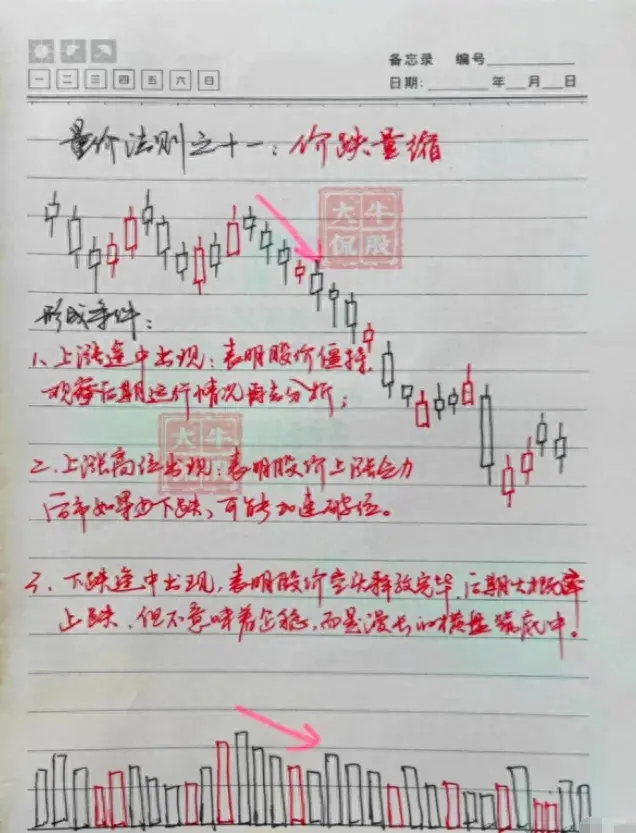 备忘录 编号
一 二 三 四 五 六 日
日期: 年 月 日
量价法则之十一：价跌量缩
大牛
侃股
形成条件：
1、上涨途中出现：表明股价僵持
观察后期运行情况再去分析；
大牛
2、上涨高位出现：表明股价上涨乏力
后市如果为下跌、可能加速破位。
3、下跌途中出现，表明股价空头释放完毕，后期大概率
止跌，但不意味着企稳，而是漫长的横盘筑底中！